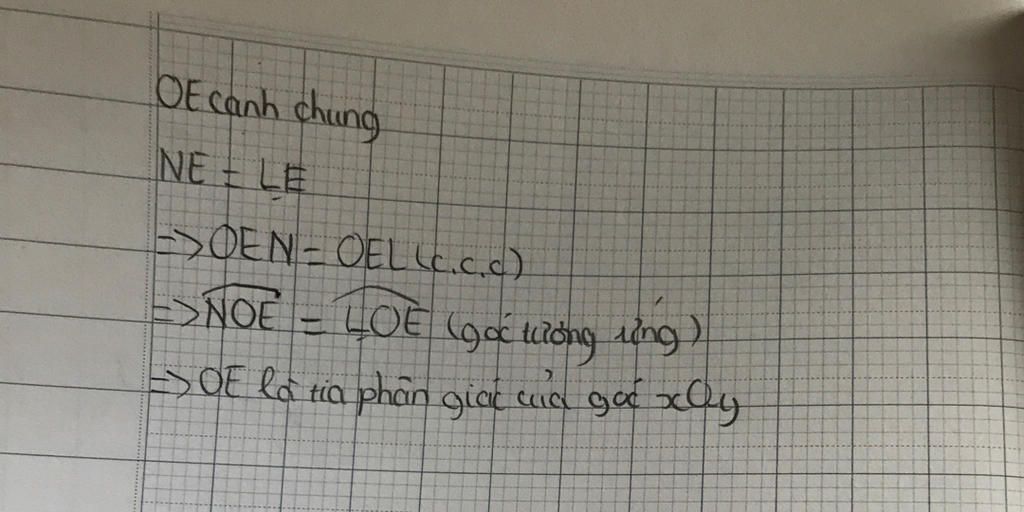 OE cạnh chung
NE = LE
=> OEN = OEL (c.c.c)
=> \widehat{NOE} = \widehat{LOE} (góc tương ứng)
=> OE là tia phân giác của góc xOy